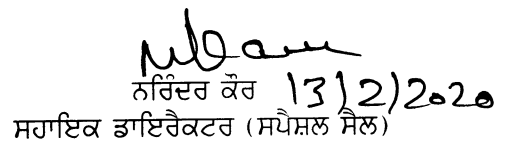 ਨਰਿੰਦਰ ਕੌਰ 13/2/2020
ਸਹਾਇਕ ਡਾਇਰੈਕਟਰ (ਸਪੈਸ਼ਲ ਸੈਲ)